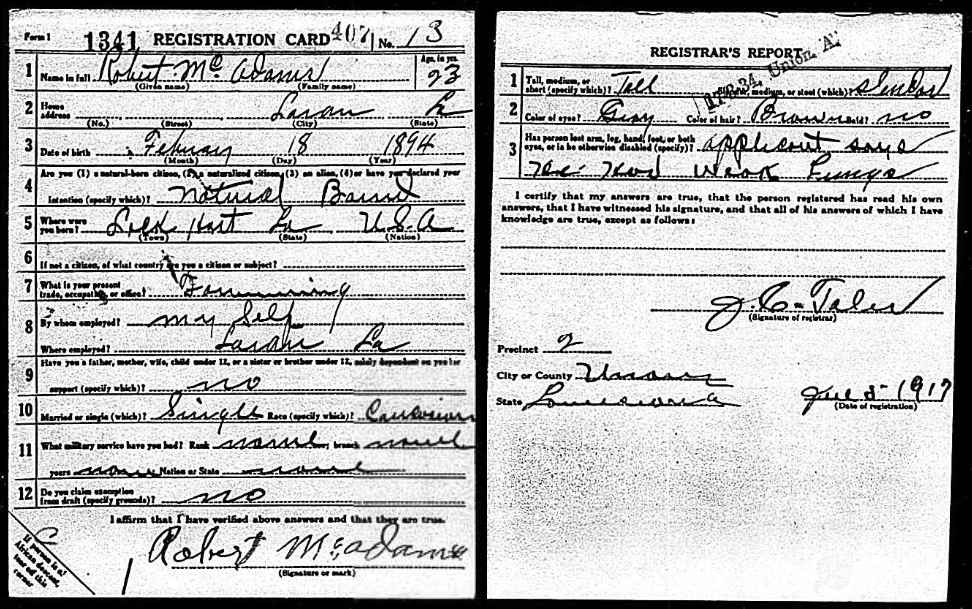 Form 1 1341 REGISTRATION CARD 407 No. 13
1 Name in full Robert Mc Adams Age, in yrs. 23
(Given name) (Family name)
2 Home address Laran La
(No.) (Street) (City) (State)
3 Date of birth 18 1894
(Month) (Day) (Year)
4 Are you (1) a natural-born citizen, (2) a naturalized citizen, (3) an alien, (4) or have you declared your
intention (specify which)? Natural
5 Where were you born? La U.S.A
(Town) (State) (Nation)
6 If not a citizen, of what country are you a citizen or subject?
7 What is your present trade, occupation, or office?
8 By whom employed? my Self
Where employed? Laran La
9 Have you a father, mother, wife, child under 12, or a sister or brother under 12, solely dependent on you for
support (specify which)? no
10 Married or single (which)? Single Race (specify which)?
11 What military service have you had? Rank ; branch
years Nation or State
12 Do you claim exemption from draft (specify grounds)? no
I affirm that I have verified above answers and that they are true.
Robert Mc adams
(Signature or mark)
If person is of African descent, tear off this corner
REGISTRAR'S REPORT
Union, A.
1 Tall, medium, or short (specify which)? Tall Slender, medium, or stout (which)?
2 Color of eyes? Color of hair? Brown Bald? no
3 Has person lost arm, leg, hand, foot, or both eyes, or is he otherwise disabled (specify)? applicant says
Weak Lungs
I certify that my answers are true, that the person registered has read his own
answers, that I have witnessed his signature, and that all of his answers of which I have
knowledge are true, except as follows:
(Signature of registrar)
Precinct 2
City or County
State Louisiana 5 1917
(Date of registration)